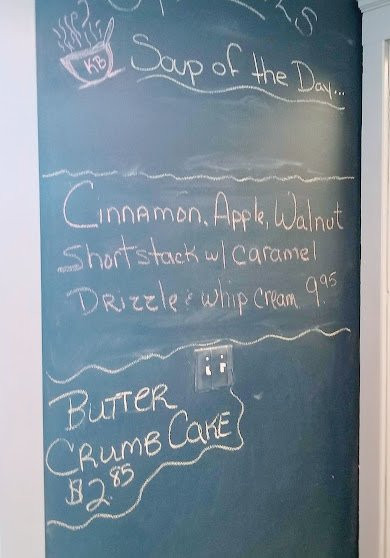 KB
Soup of the Day...
Cinnamon, Apple, Walnut
Shortstack w/ caramel
Drizzle & whip cream 9.95
Butter
Crumb Cake
$2.85